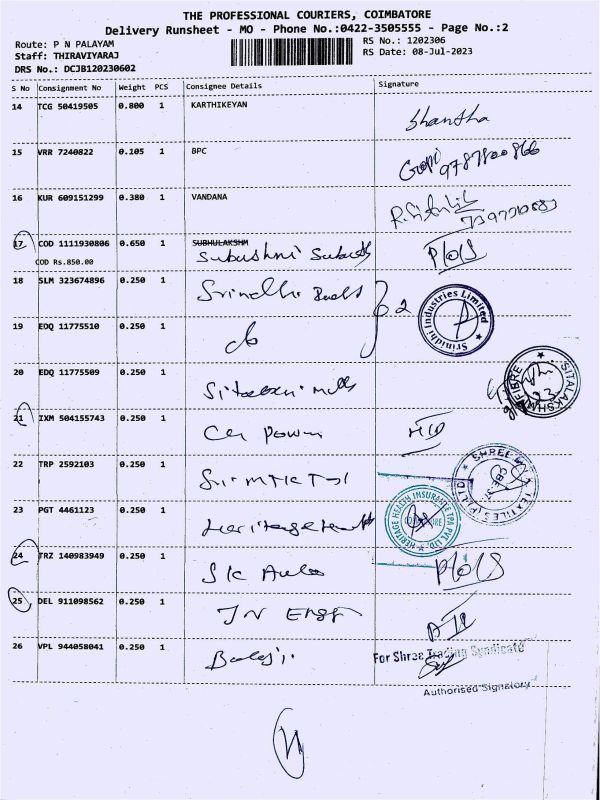 THE PROFESSIONAL COURIERS, COIMBATORE
Delivery Runsheet - MO - Phone No.:0422-3505555 - Page No.:2
Route: P N PALAYAM
RS No.: 1202306
Staff: THIRAVIYARAJ
RS Date: 08-Jul-2023
DRS No.: DCJB120230602
S No Consignment No Weight PCS Consignee Details Signature
14 TCG 50419505 0.800 1 KARTHIKEYAN
Shantha
15 VRR 7240822 0.105 1 BPC
Gopi 9787800866
16 KUR 609151299 0.380 1 VANDANA
17 COD 1111930806 0.650 1 SUBHULAKSHM
COD Rs.850.00
P/O/S
18 SLM 323674896 0.250 1 Srinidhi
2
Srinidhi Industries Limited
19 EDQ 11775510 0.250 1 do
20 EDQ 11775509 0.250 1
SITALAKSHMI FIBRE
21 IXM 504155743 0.250 1 Power
22 TRP 2592103 0.250 1
SHREE TEXTILES (P) LTD
23 PGT 4461123 0.250 1 Heritage Health
HERITAGE HEALTH INSURANCE TPA PVT. LTD.
24 TRZ 140983949 0.250 1 SK Auto
P/O/S
25 DEL 911098562 0.250 1 JN Engg
26 VPL 944058041 0.250 1 Balaji
For Shree Trading Syndicate
Authorised Signatory